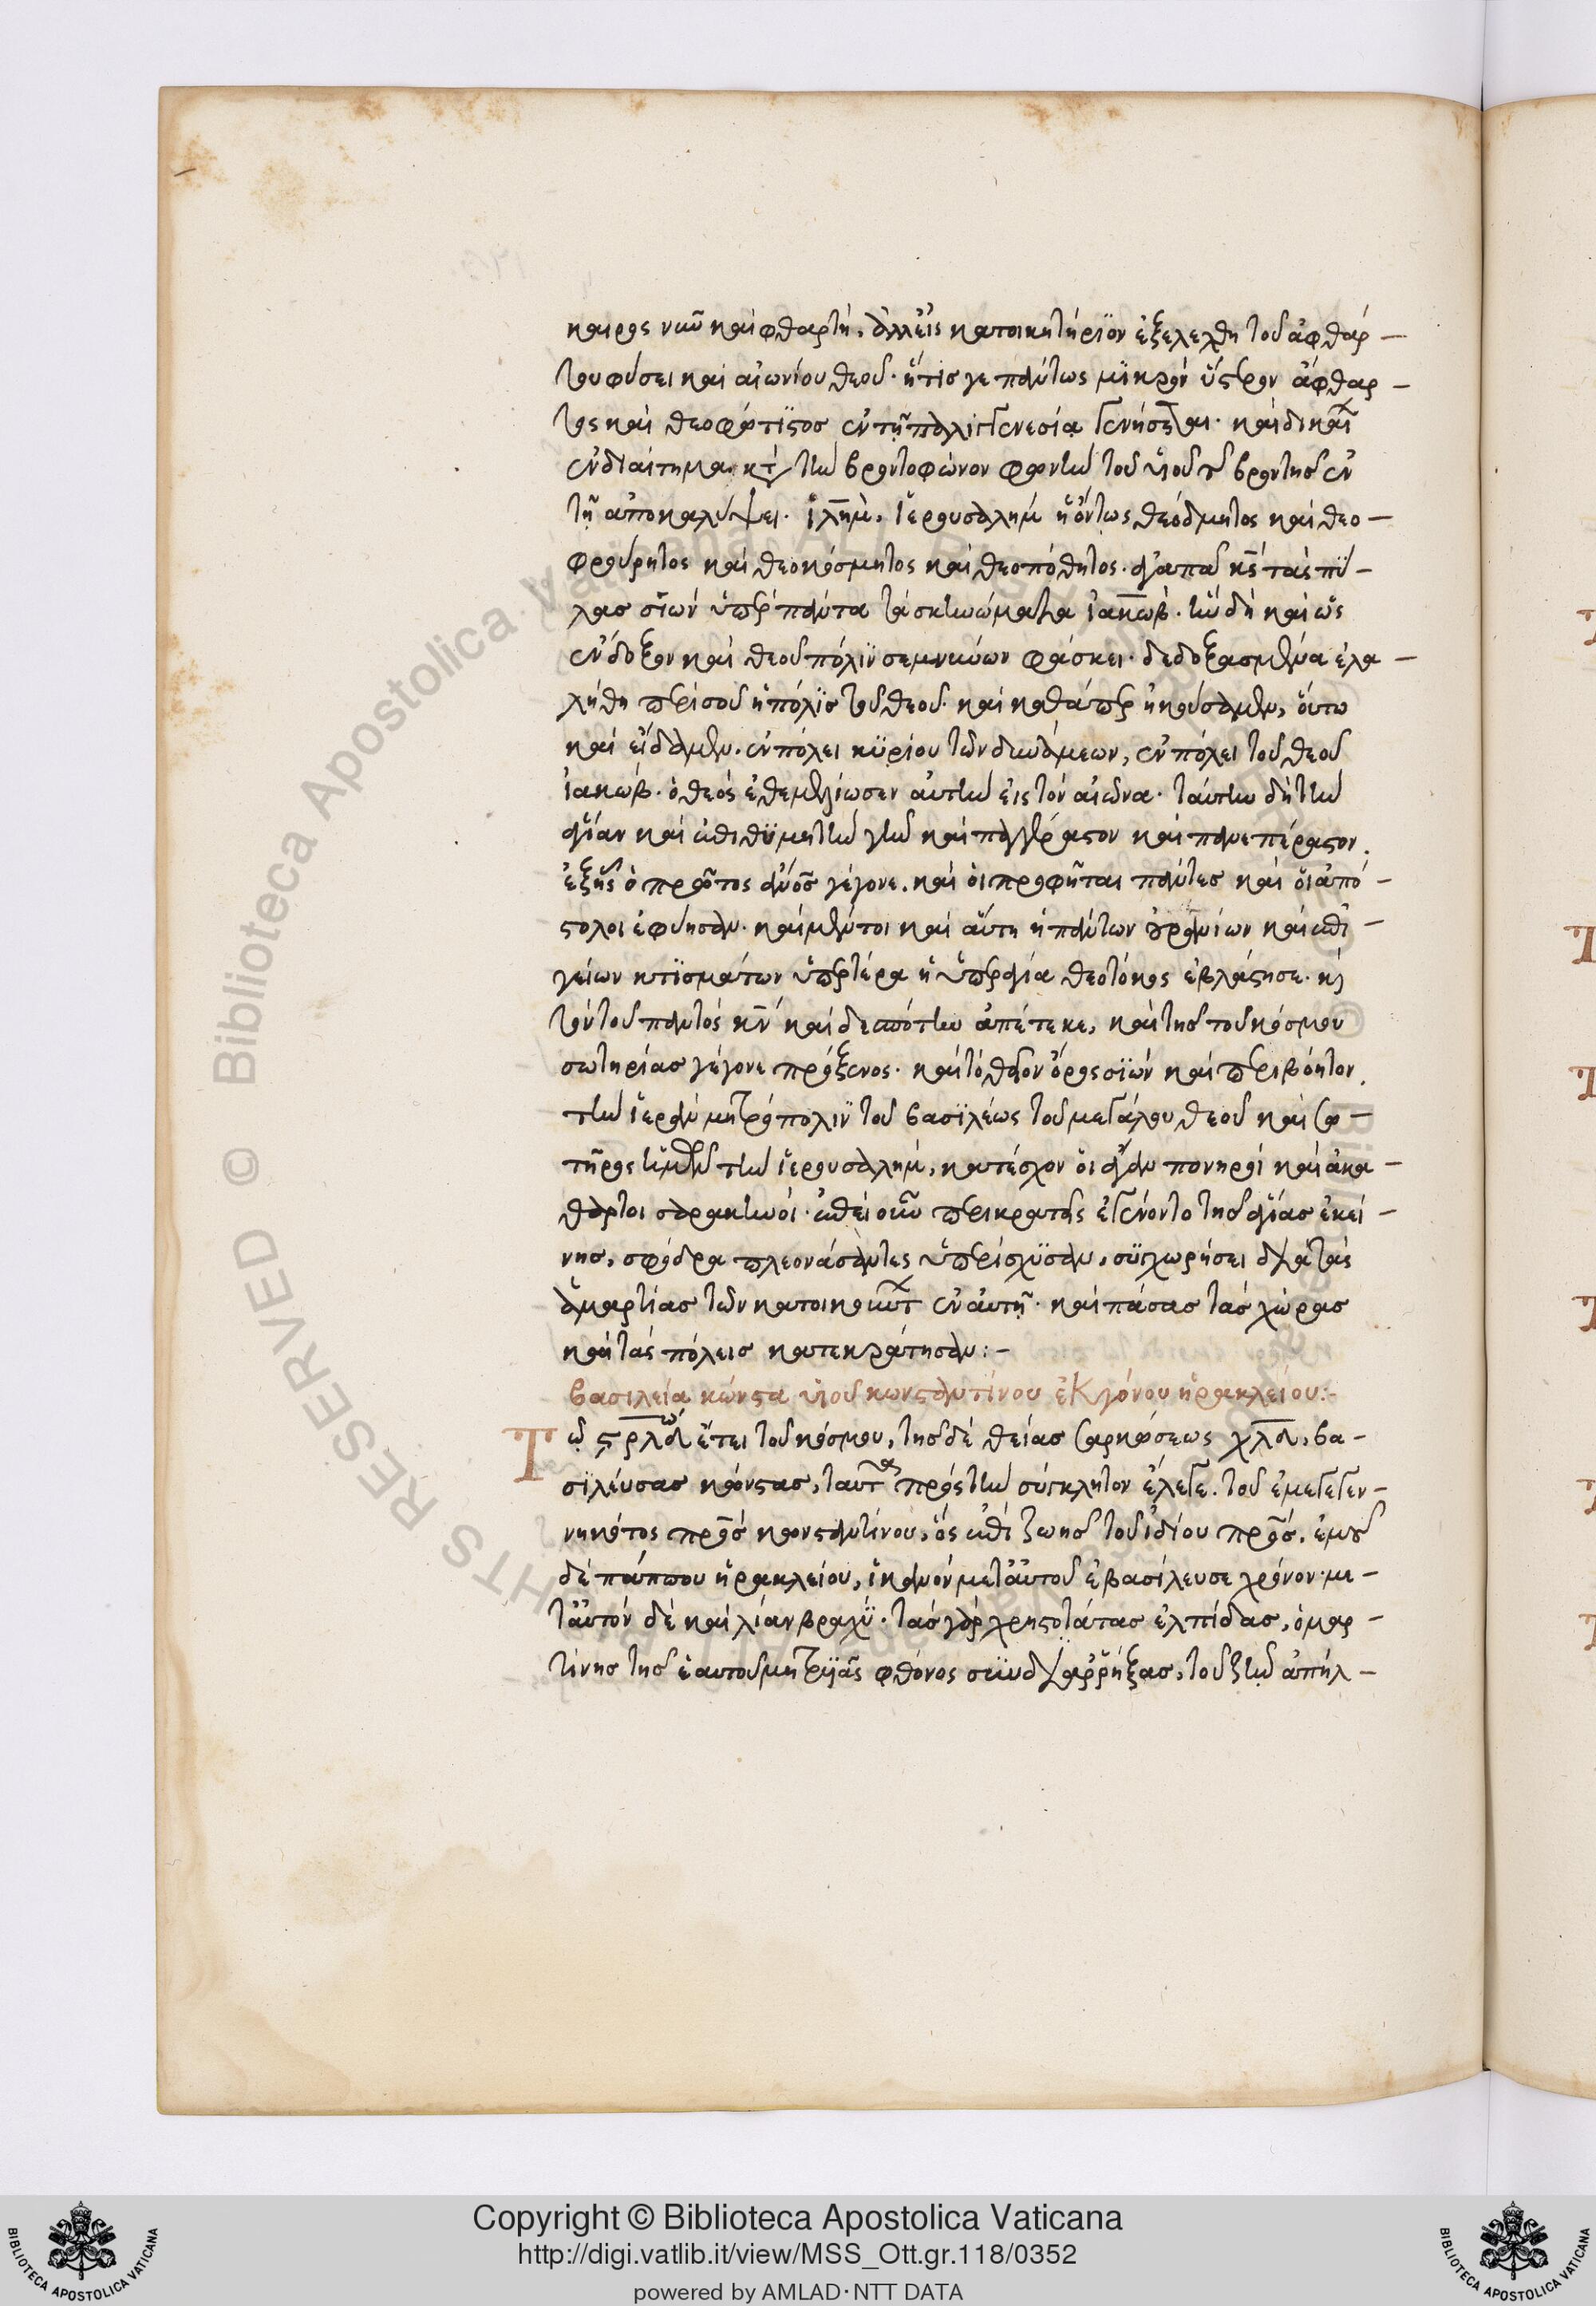 καιρος νῦν καὶ φθαρτὴ, ἀλλ' εἰς κατοικητήριον ἐξελέχθη τοῦ ἀφθάρ-
του φύσει καὶ αἰωνίου θεοῦ· ἥτίς γε πάντως μικρὸν ὕστερον ἄφθαρ-
τος καὶ θεοφώτιστος ἐν τῇ παλιγγενεσίᾳ γενήσεται· καὶ δικαι
ἐνδιαίτημα κτ τὴν βροντόφωνον φωνὴν τοῦ υἱοῦ τ βροντῆς ἐν
τῇ ἀποκαλύψει. ιλημ, ἱερουσαλὴμ ἡ ὄντως θεόδμητος καὶ θεο-
φρούρητος καὶ θεοκόσμητος καὶ θεοπόθητος· ἀγαπᾷ κς τὰς πύ-
λας σιὼν ὑπὲρ πάντα τὰ σκηνώματα ἰακώβ. ἣν δὴ καὶ ὡς
ἔνδοξον καὶ θεοῦ πόλιν σεμνύων φάσκει· δεδοξασμένα ἐλα-
λήθη περὶ σοῦ ἡ πόλις τοῦ θεοῦ· καὶ καθάπερ ἠκούσαμεν, οὕτω
καὶ εἴδαμεν. ἐν πόλει κυρίου τῶν δυνάμεων, ἐν πόλει τοῦ θεοῦ
ἰακώβ. ὁ θεὸς ἐθεμελίωσεν αὐτὴν εἰς τὸν αἰῶνα. ταύτην δὴ τὴν
ἁγίαν καὶ ἐπιθυμητὴν γῆν καὶ παγέραστον καὶ πανεπέραστον.
ἐξ ἧς ὁ πρῶτος ανος γέγονε. καὶ οἱ προφῆται πάντες καὶ οἱ ἀπό-
στολοι ἔφυησαν. καὶ μέντοι καὶ αὕτη ἡ πάντων οὐρανίων καὶ ἐπι-
γείων κτισμάτων ὑπερτέρα ἡ ὑπεραγία θεοτόκος ἐβλάστησε. καὶ
τὸν τοῦ παντὸς κν καὶ δεσπότην ἀπέτεκε, καὶ τῆς τοῦ κόσμου
σωτηρίας γέγονε πρόξενος. καὶ τὸ θεῖον ὄρος σιὼν καὶ περιβόητον.
τὴν ἱερὰν μητρόπολιν τοῦ βασιλέως τοῦ μεγάλου θεοῦ καὶ σω-
τῆρος ἡμῶν τὴν ἱερουσαλὴμ, κατέσχον οἱ ἄγαν πονηροὶ καὶ ἀκα-
θαρτοι σαρακηνοὶ. ἐπεὶ οὖν περικρατεῖς ἐγένοντο τῆς ἁγίας ἐκεί-
νης, σφόδρα πλεονάσαντες ὑπερίσχυσαν, συγχωρήσει διὰ τὰς
ἁμαρτίας τῶν κατοικούντ ἐν αὐτῇ. καὶ πάσας τὰς χώρας
καὶ τὰς πόλεις κατεκράτησαν:-
βασιλεία κώνστα υἱοῦ κωνσταντίνου ἐκγόνου ἡρακλείου:-
Τῷ ϛρλδ ἔτει τοῦ κόσμου, τῆς δὲ θείας σαρκώσεως χλδ, βα-
σιλεύσας κώνστας, ταῦτα πρὸς τὴν σύγκλητον ἔλεγε. τοῦ ἐμὲ γεγεν-
νηκότος πρς κωνσταντίνου, ὃς ἐπὶ ζωῆς τοῦ ἰδίου πρς, ἐμοῦ
δὲ πάππου ἡρακλείου, ἱκανὸν μετ' αὐτοῦ ἐβασίλευσε χρόνον. με-
τ' αὐτὸν δὲ καὶ λίαν βραχὺ. τὰς γὰρ χρηστοτάτας ἐλπίδας, ὁ μαρ-
τίνης τῆς ἑαυτοῦ μητρυιᾶς φθόνος συνδιαρρήξας, τοῦ ζῆν ἀπήλ-